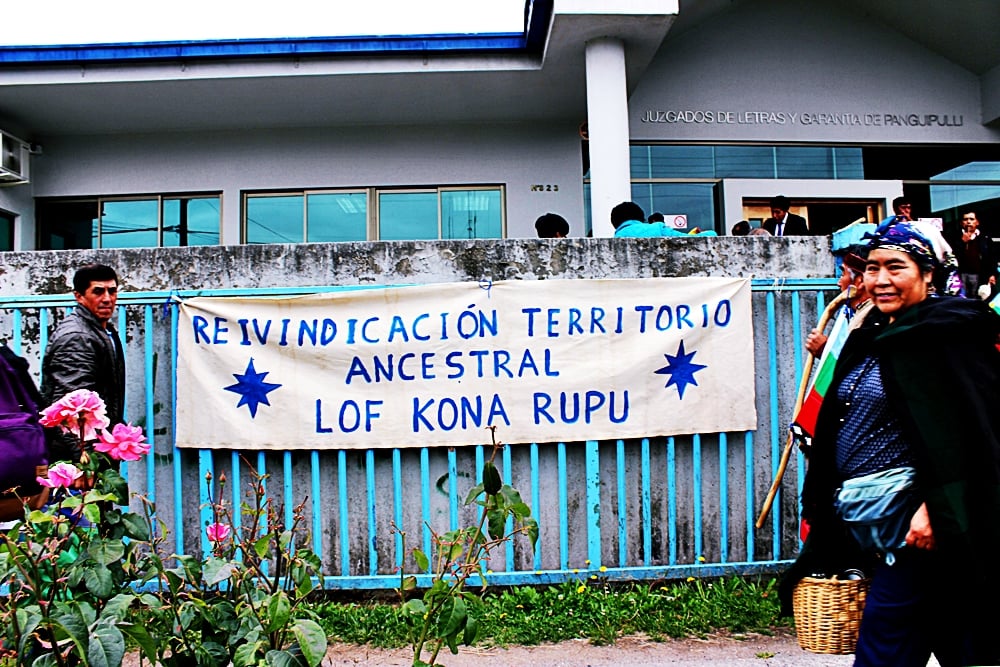 JUZGADOS DE LETRAS Y GARANTIA DE PANGUIPULLI
Nº 823
REIVINDICACIÓN TERRITORIO
ANCESTRAL
LOF KONA RUPU